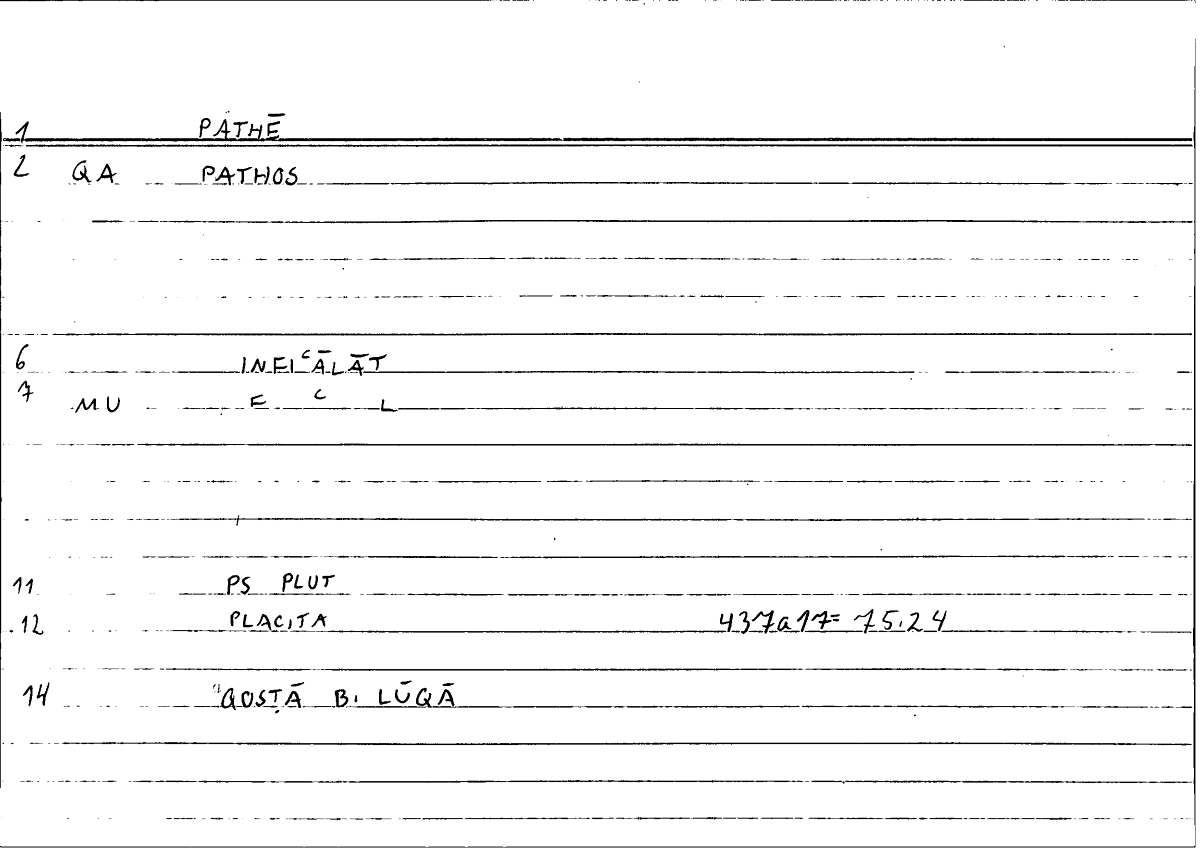 1 PATHĒ
2 QA PATHOS
6 INFIʿĀLĀT
7 MU F ʿ L
11 PS PLUT
12 PLACITA 437a17= 75.24
14 QOSṬĀ B. LŪQĀ